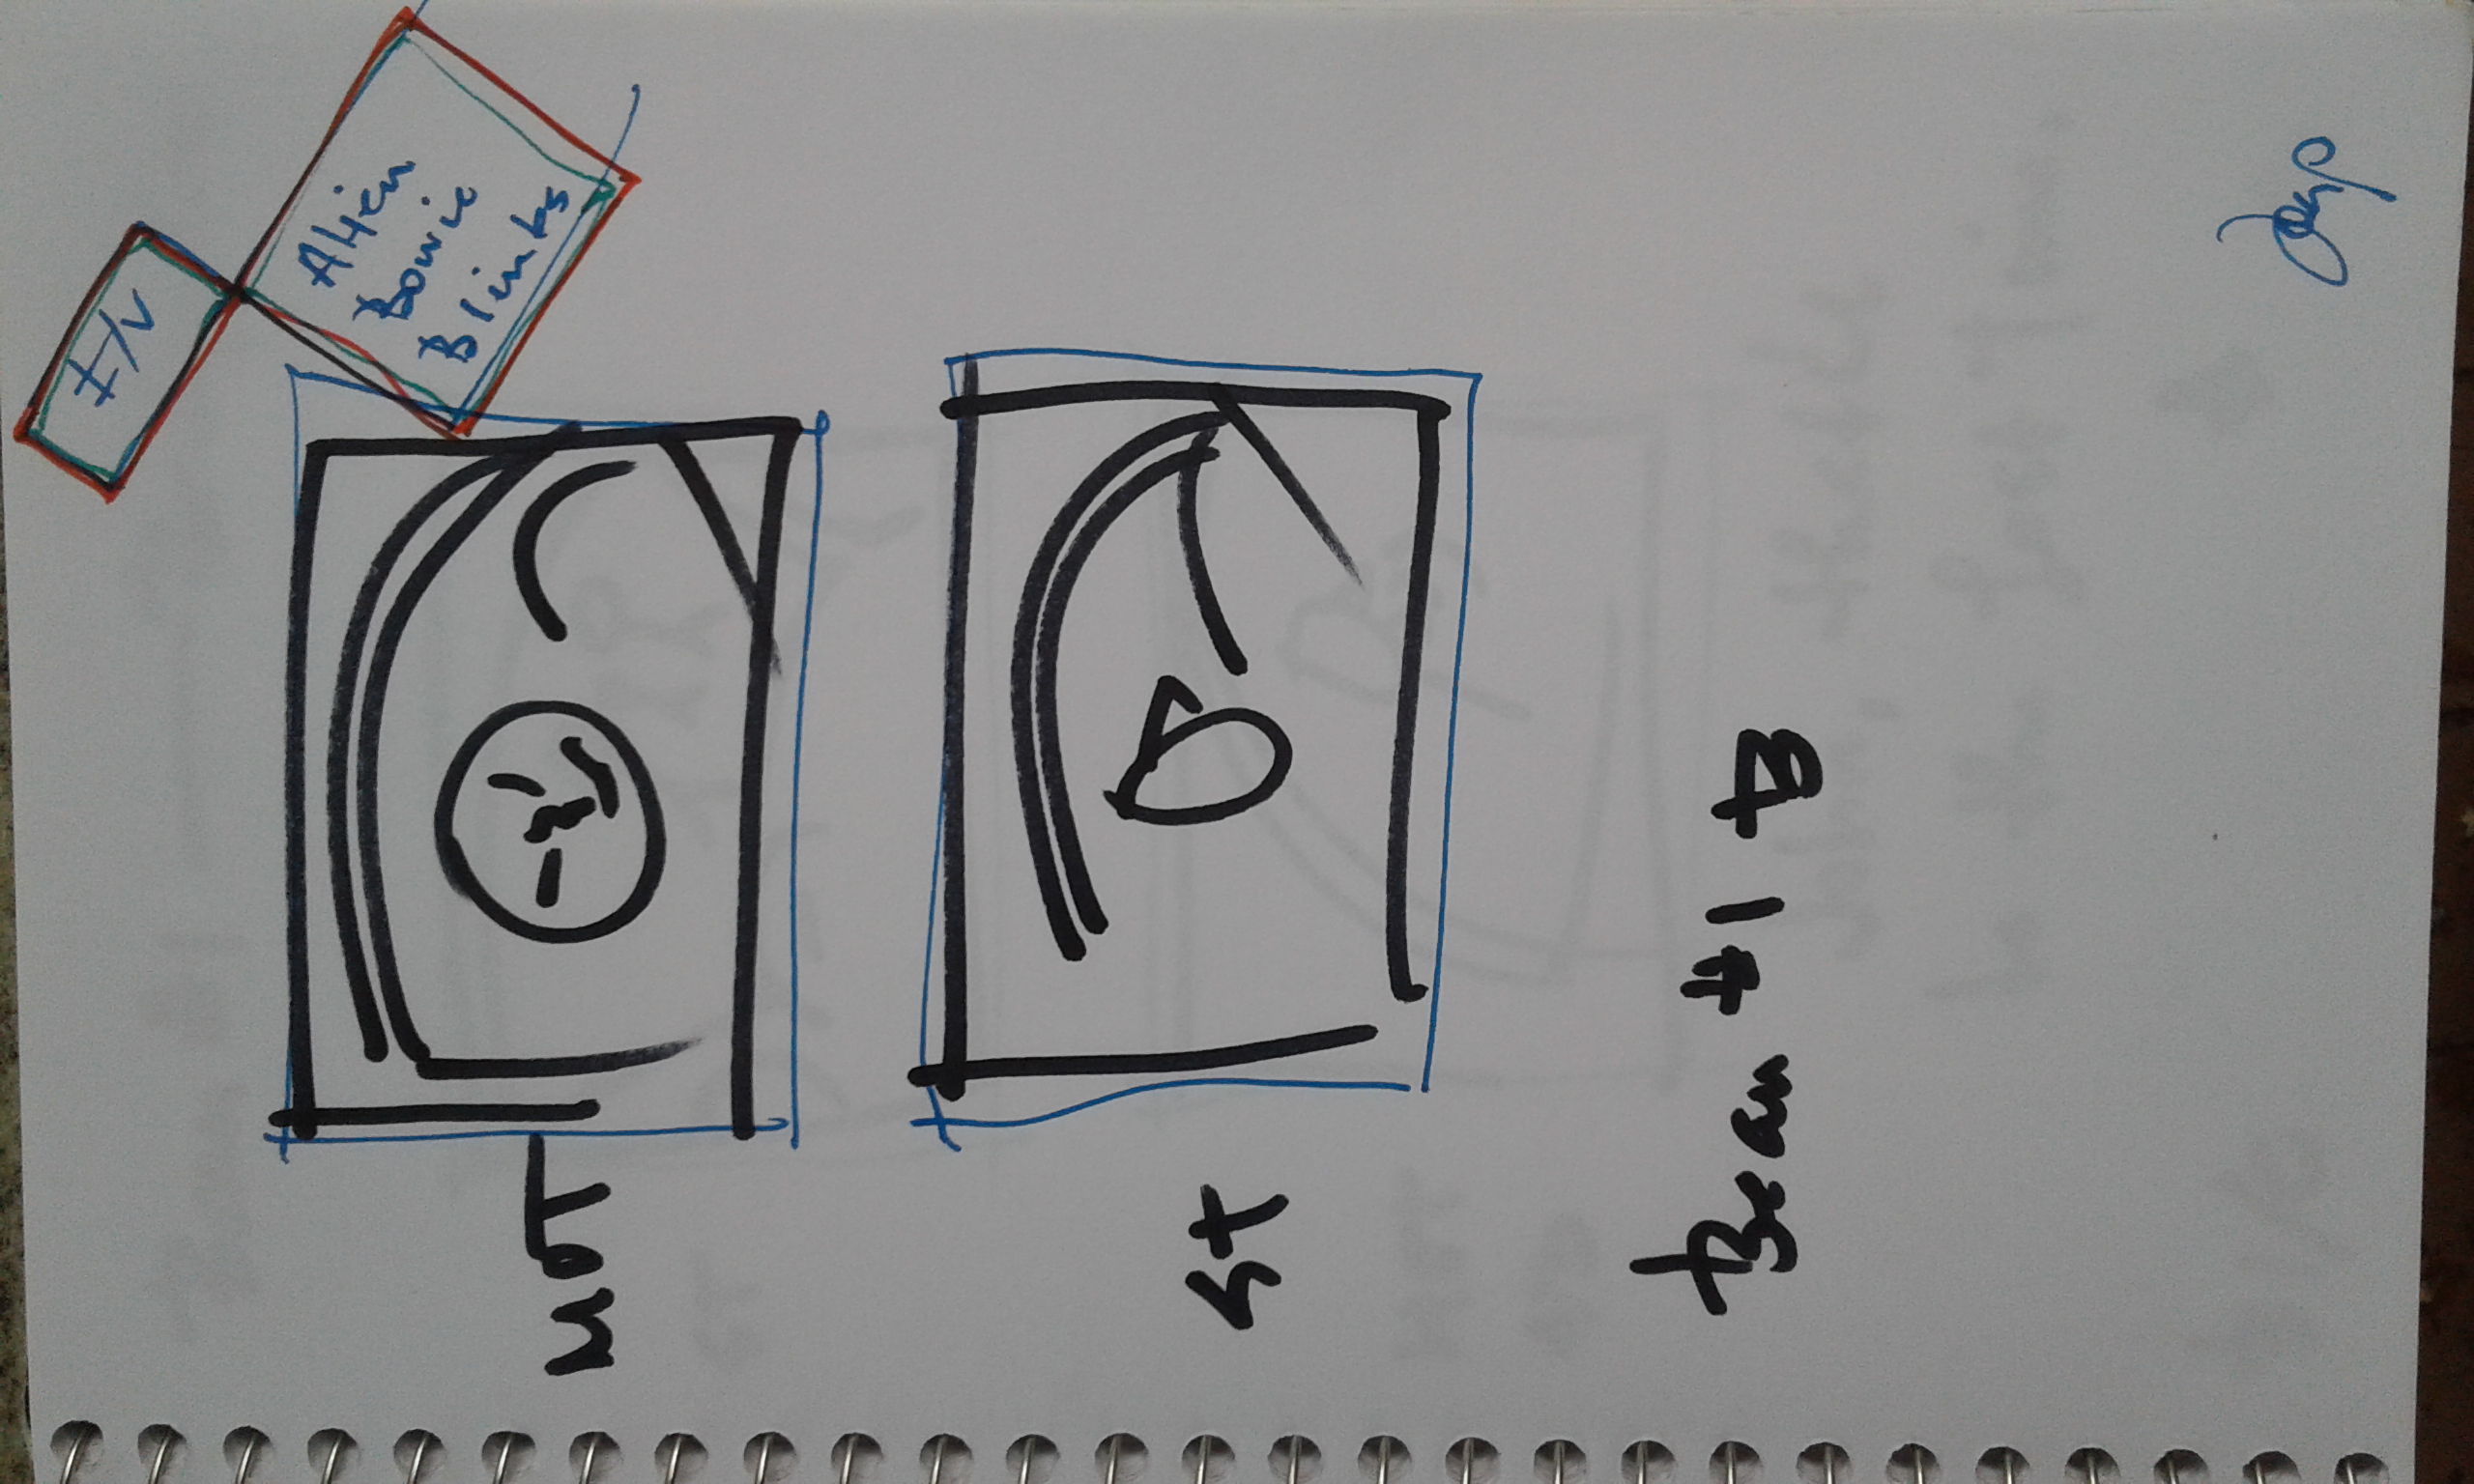 I/V
Alien
Bowie
Blinks
MOT
St
Bean #1 B